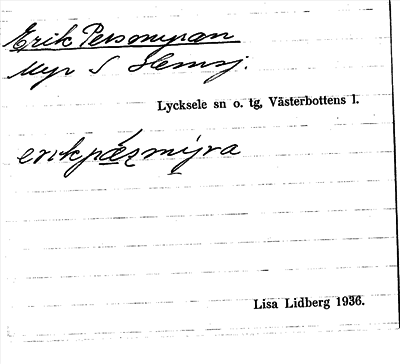 Erik Persmyran
Myr S Hemsj.
Lycksele sn o. tg, Västerbottens l.
erikpæ̲ʀ̲smy̲ra
Lisa Lidberg 1936.